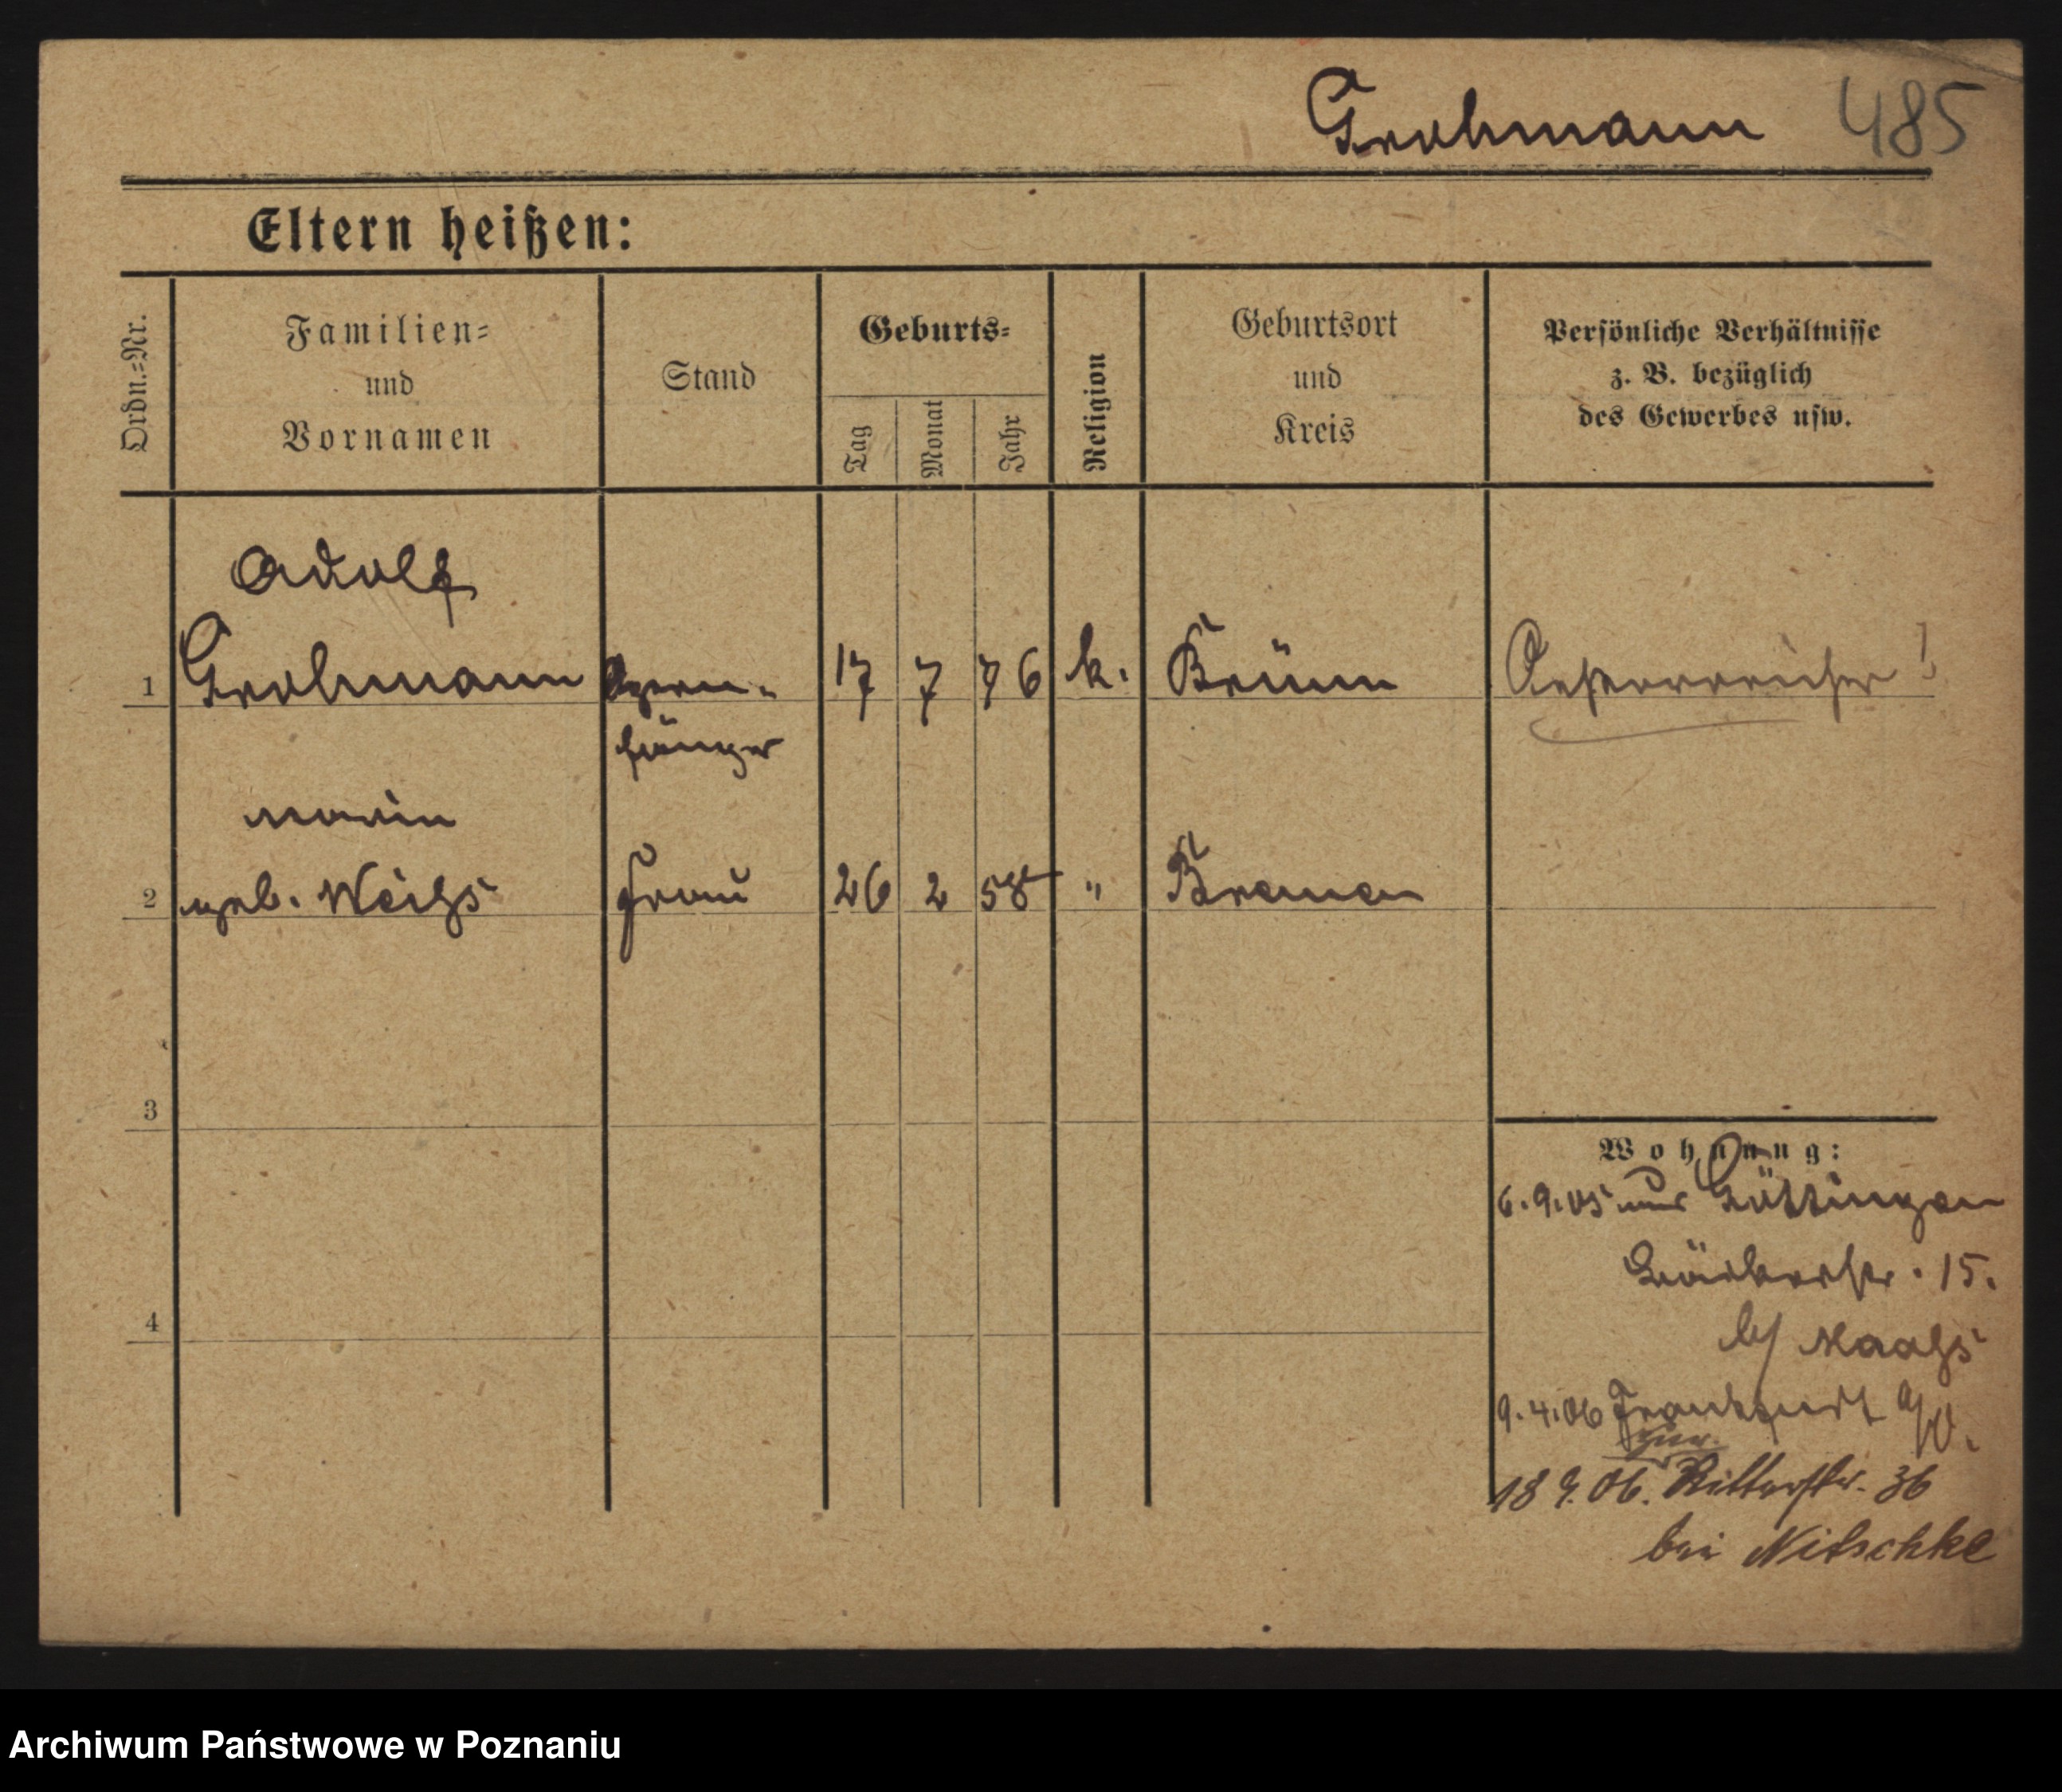 Grohmann 485
Eltern heißen:
Ordn.-Nr.
Familien- und Vornamen
Stand
Geburts-
Tag
Monat
Jahr
Religion
Geburtsort und Kreis
Persönliche Verhältnisse
z. B. bezüglich
des Gewerbes usw.
Adolf
1 Grohmann Opern- 17 7 76 k. Brünn Oesterreicher!
sänger
Marie
2 geb. Weihs Frau 26 2 58 " Bremen
3
4
Wohnung:
6.9.05 aus Göttingen
15.
b/ Maahs
9.4.06 Frankfurt a/O.
zur.
18 9. 06. Ritterstr. 36
bei Nitschke
Archiwum Państwowe w Poznaniu